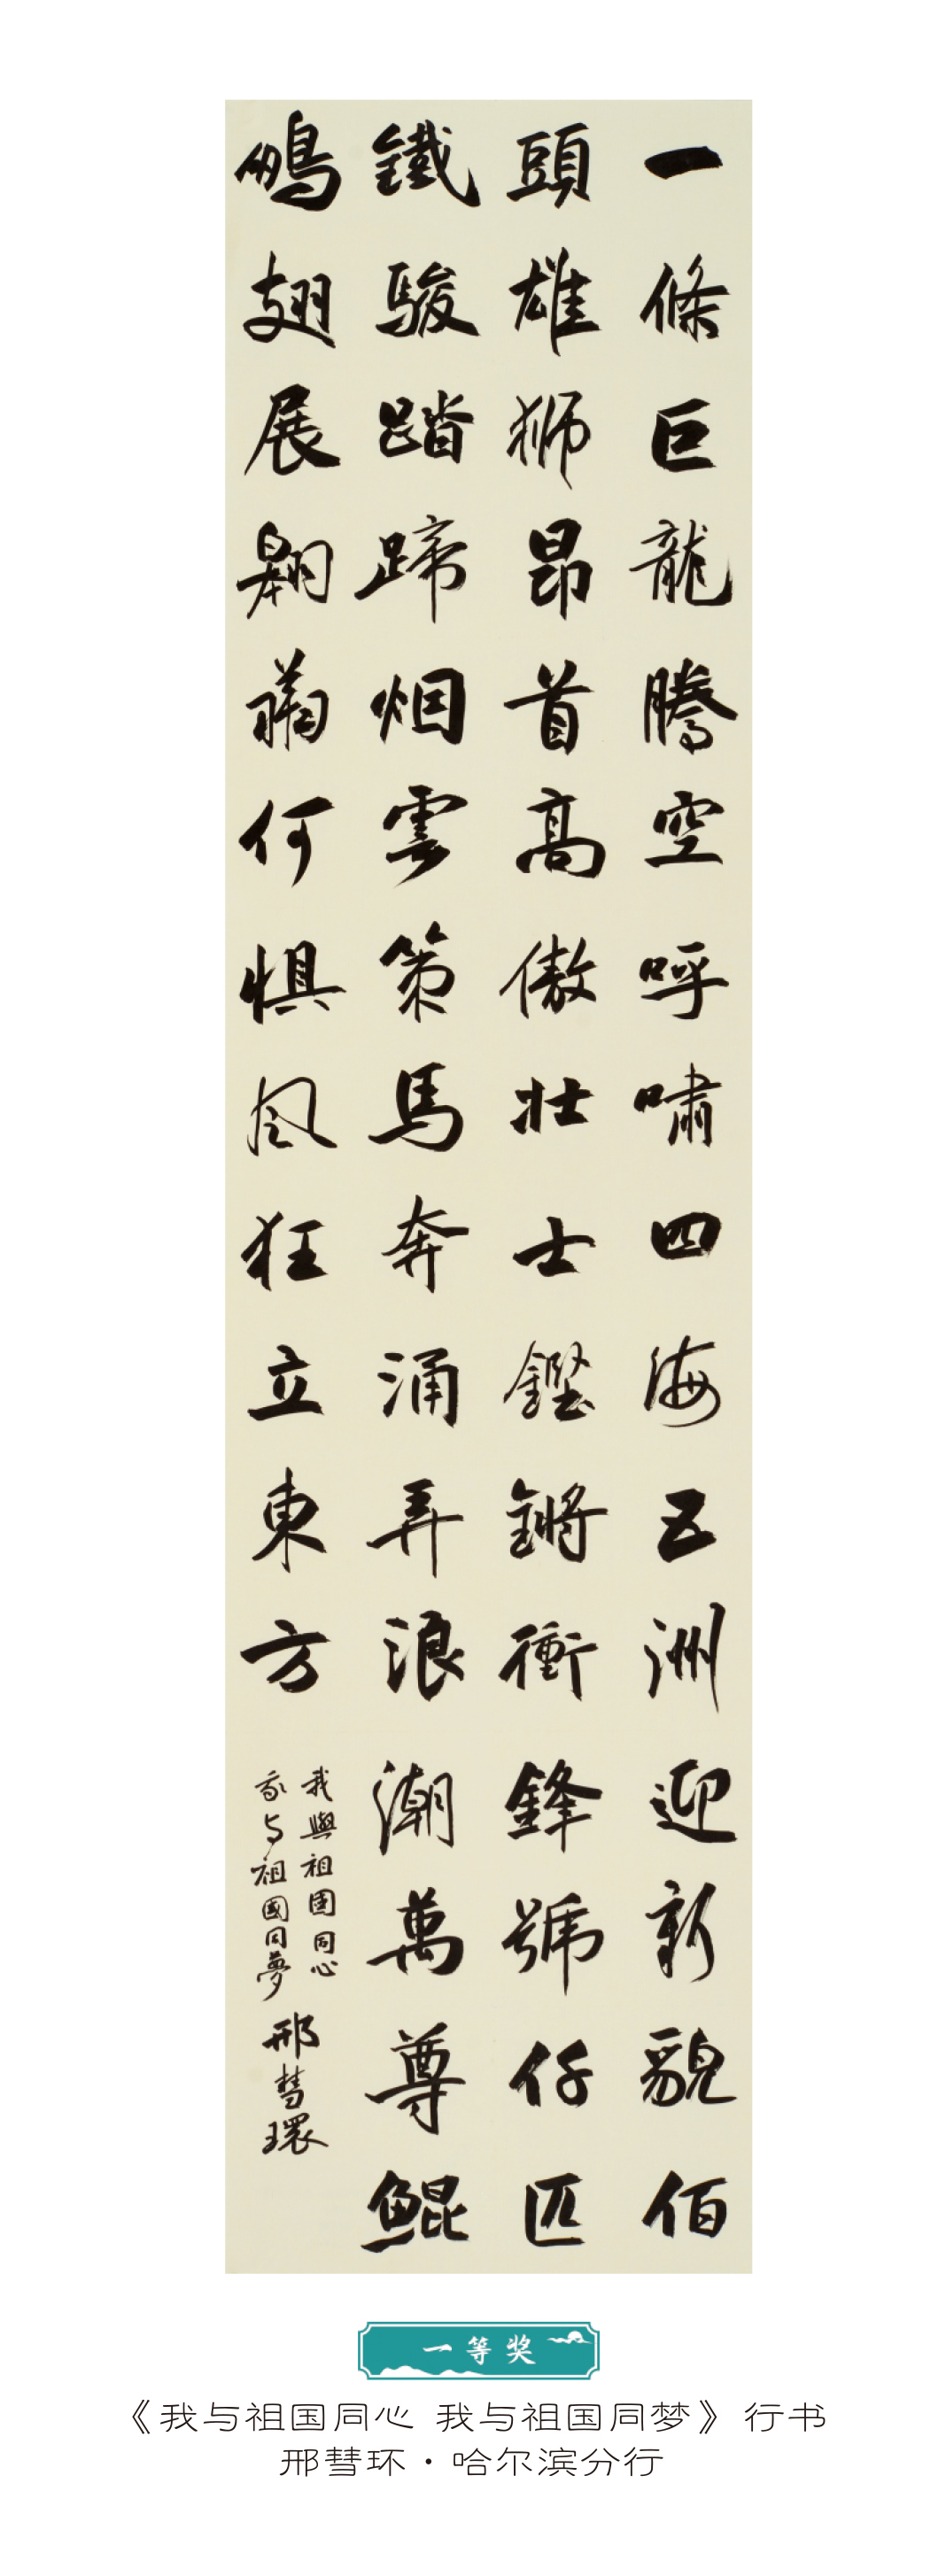 一條巨龍騰空呼嘯四海五洲迎新貌佰
頭雄狮昂首高傲壮士鏗鏘衝鋒號仔匹
鐵駿踏蹄烟雲策馬奔涌弄浪潮萬尊鲲
鵬翅展翱翔何惧风狂立東方
我與祖国同心
我与祖國同夢
邢彗環
一等奖
《我与祖国同心 我与祖国同梦》行书
邢彗环·哈尔滨分行